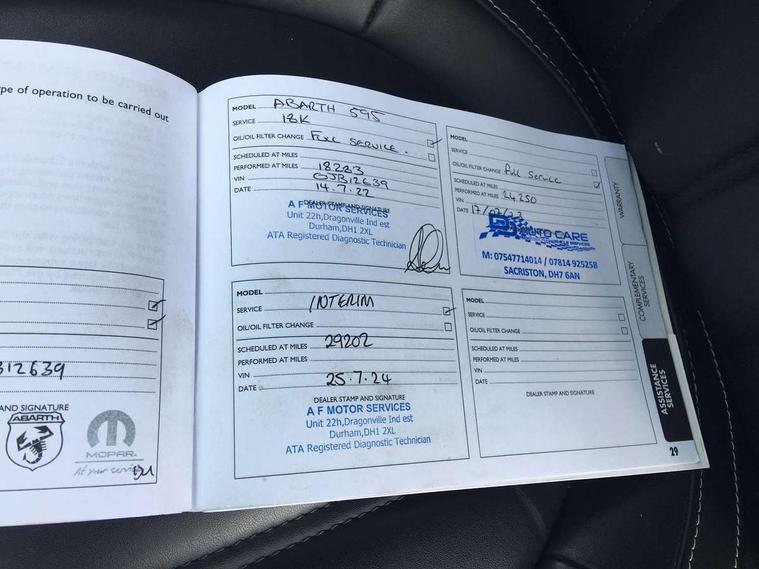 ype of operation to be carried out
312639
AND SIGNATURE
ABARTH
MOPAR
At your service
MODEL ABARTH 595
SERVICE 18K
OIL/OIL FILTER CHANGE FULL SERVICE.
SCHEDULED AT MILES
PERFORMED AT MILES 18283
VIN OJB12639
DATE 14.7.22
DEALER STAMP AND SIGNATURE
A F MOTOR SERVICES
Unit 22h,Dragonville Ind est
Durham,DH1 2XL
ATA Registered Diagnostic Technician
MODEL
SERVICE
OIL/OIL FILTER CHANGE Full Service
SCHEDULED AT MILES
PERFORMED AT MILES 24250
VIN
DATE 17/07/23
AUTO CARE
M: 07547714014 / 07814 925258
SACRISTON, DH7 6AN
MODEL
SERVICE INTERIM
OIL/OIL FILTER CHANGE
SCHEDULED AT MILES 29202
PERFORMED AT MILES
VIN
DATE 25.7.24
DEALER STAMP AND SIGNATURE
A F MOTOR SERVICES
Unit 22h,Dragonville Ind est
Durham,DH1 2XL
ATA Registered Diagnostic Technician
MODEL
SERVICE
OIL/OIL FILTER CHANGE
SCHEDULED AT MILES
PERFORMED AT MILES
VIN
DATE
DEALER STAMP AND SIGNATURE
WARRANTY
COMPLEMENTARY
SERVICES
ASSISTANCE
SERVICES
29